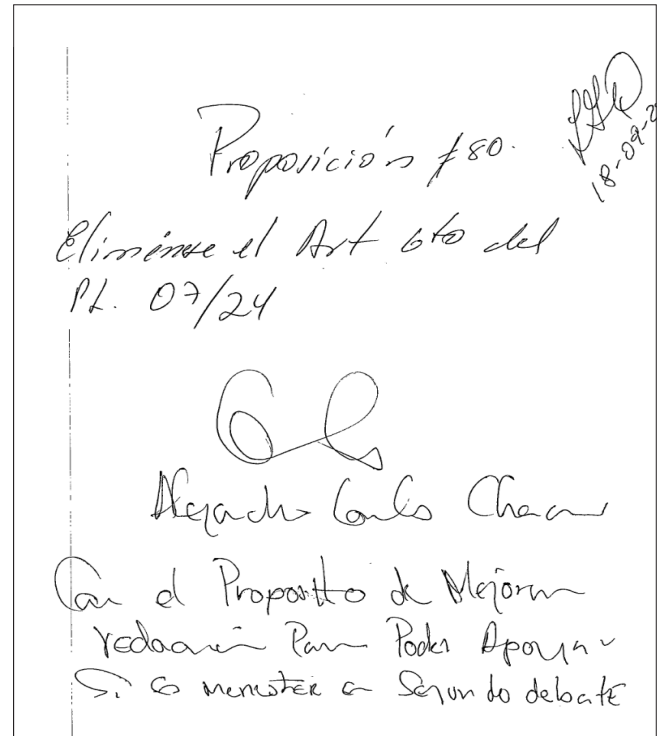 Proposición #80.
18-09-2
Elimínese el Art 6to del
P.L. 07/24
Alejandro Carlos Chacón
Con el Proposito de Mejorar
redacción Para Poder Apoyar
Si es menester en Segundo debate